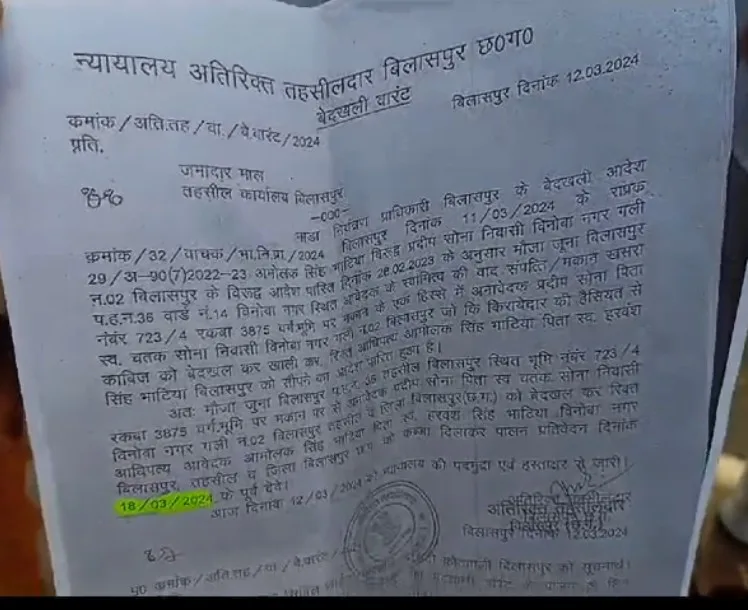 न्यायालय अतिरिक्त तहसीलदार बिलासपुर छ0ग0
बेदखली वारंट
बिलासपुर दिनांक 12.03.2024
कमांक/अति.तह/वा./बे.वारंट/2024
प्रति,
जमादार माल
तहसील कार्यालय बिलासपुर
-000-
भाडा नियंत्रण प्राधिकारी बिलासपुर के बेदखली आदेश
क्रमांक/32/वाचक/भा.नि.प्रा./2024 बिलासपुर दिनांक 11/03/2024 के राप्रक
29/अ-90(7)2022-23 अमोलक सिंह भाटिया विरुद्ध प्रदीप सोना निवासी विनोबा नगर गली
न.02 बिलासपुर के विरुद्ध आदेश पारित दिनांक 28.02.2023 के अनुसार मौजा जूना बिलासपुर
प.ह.न.36 वार्ड नं.14 विनोबा नगर स्थित आवेदक के स्वामित्व की वाद संपत्ति/मकान खसरा
नंबर 723/4 रकबा 3875 वर्ग.भूमि पर मकान के एक हिस्से में अनावेदक प्रदीप सोना पिता
स्व. चतक सोना निवासी विनोबा नगर गली न.02 बिलासपुर जो कि किरायेदार की हैसियत से
काबिज को बेदखल कर खाली कर, रिक्त आधिपत्य आमोलक सिंह भाटिया पिता स्व. हरवंश
सिंह भाटिया बिलासपुर को सौपने का आदेश पारित हुआ है।
अतः मौजा जूना बिलासपुर प.ह.न. 36 तहसील बिलासपुर स्थित भूमि नंबर 723/4
रकबा 3875 वर्ग.भूमि पर मकान पर से अनावेदक प्रदीप सोना पिता स्व चतक सोना निवासी
विनोबा नगर गली न.02 बिलासपुर तहसील व जिला बिलासपुर(छ.ग.) को बेदखल कर रिक्त
आधिपत्य आवेदक आमोलक सिंह भाटिया पिता स्व. हरवंश सिंह भाटिया विनोबा नगर
बिलासपुर, तहसील व जिला बिलासपुर छ.ग. को कब्जा दिलाकर पालन प्रतिवेदन दिनांक
18/03/2024 के पूर्व देवे।
आज दिनांक 12/03/2024 को न्यायालय की पदमुद्रा एवं हस्ताक्षर से जारी।
अतिरिक्त तहसीलदार
बिलासपुर
बिलासपुर दिनांक 12.03.2024
पृ0 क्रमांक/अति.तह/वा/बे.वारंट/
बिलासपुर को सूचनार्थ।